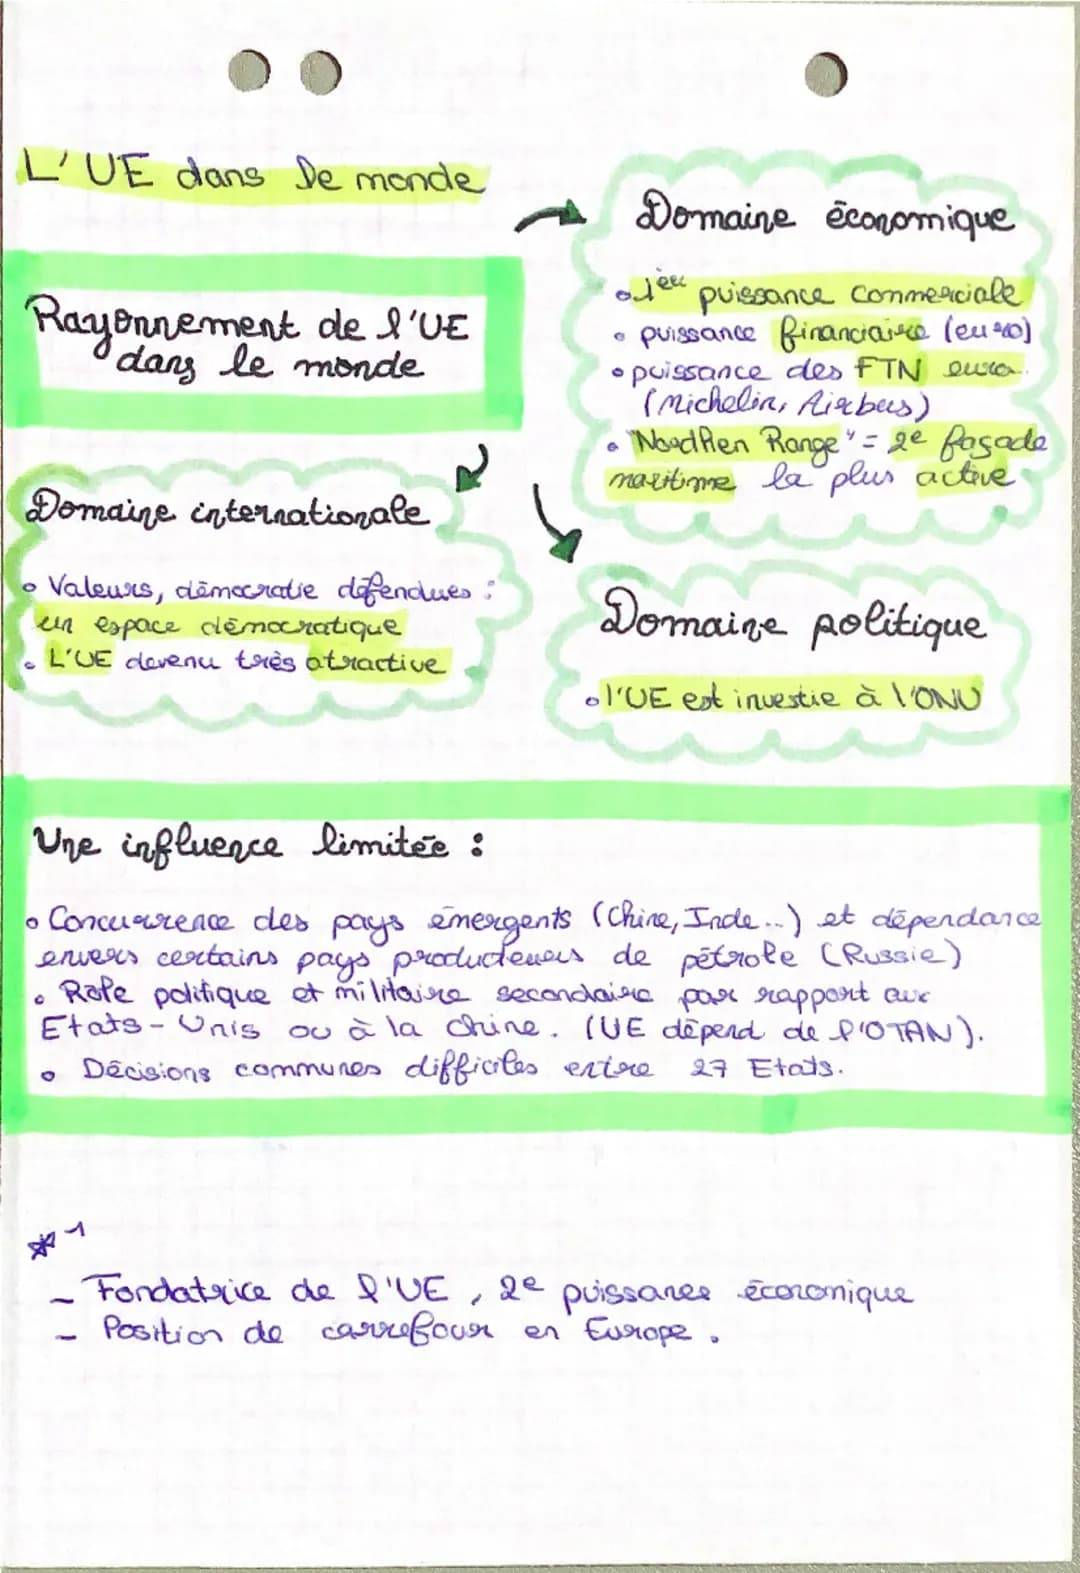 L'UE dans le monde
Rayonnement de l'UE
dans le monde
Domaine économique
• 1ère puissance commerciale
• puissance financiaire (euro)
• puissance des FTN euro.
(Michelin, Airbus)
• "Northen Range" = 2e façade
maritime la plus active
Domaine internationale
• Valeurs, démocratie défendues :
un espace démocratique
• L'UE devenu très atractive
Domaine politique
• l'UE est investie à l'ONU
Une influence limitée :
• Concurrence des pays émergents (Chine, Inde...) et dépendance
envers certains pays producteurs de pétrole (Russie)
• Role politique et militaire secondaire par rapport aux
Etats-Unis ou à la chine. (UE dépend de l'OTAN).
• Décisions communes difficiles entre 27 Etats.
*1
- Fondatrice de l'UE, 2e puissance économique
- Position de carrefour en Europe.